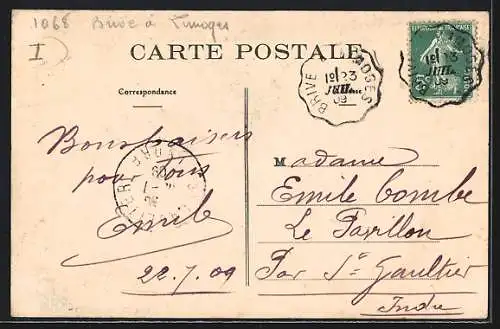 1068 Brive à Limoges
I
CARTE POSTALE
Correspondance
Bons baisers
pour tous
Emile
22.7.09
BRIVE LIMOGES
1º/ 23
JUIL
09
Madame
Emile Combe
Le Pavillon
Par St Gaultier
Indre